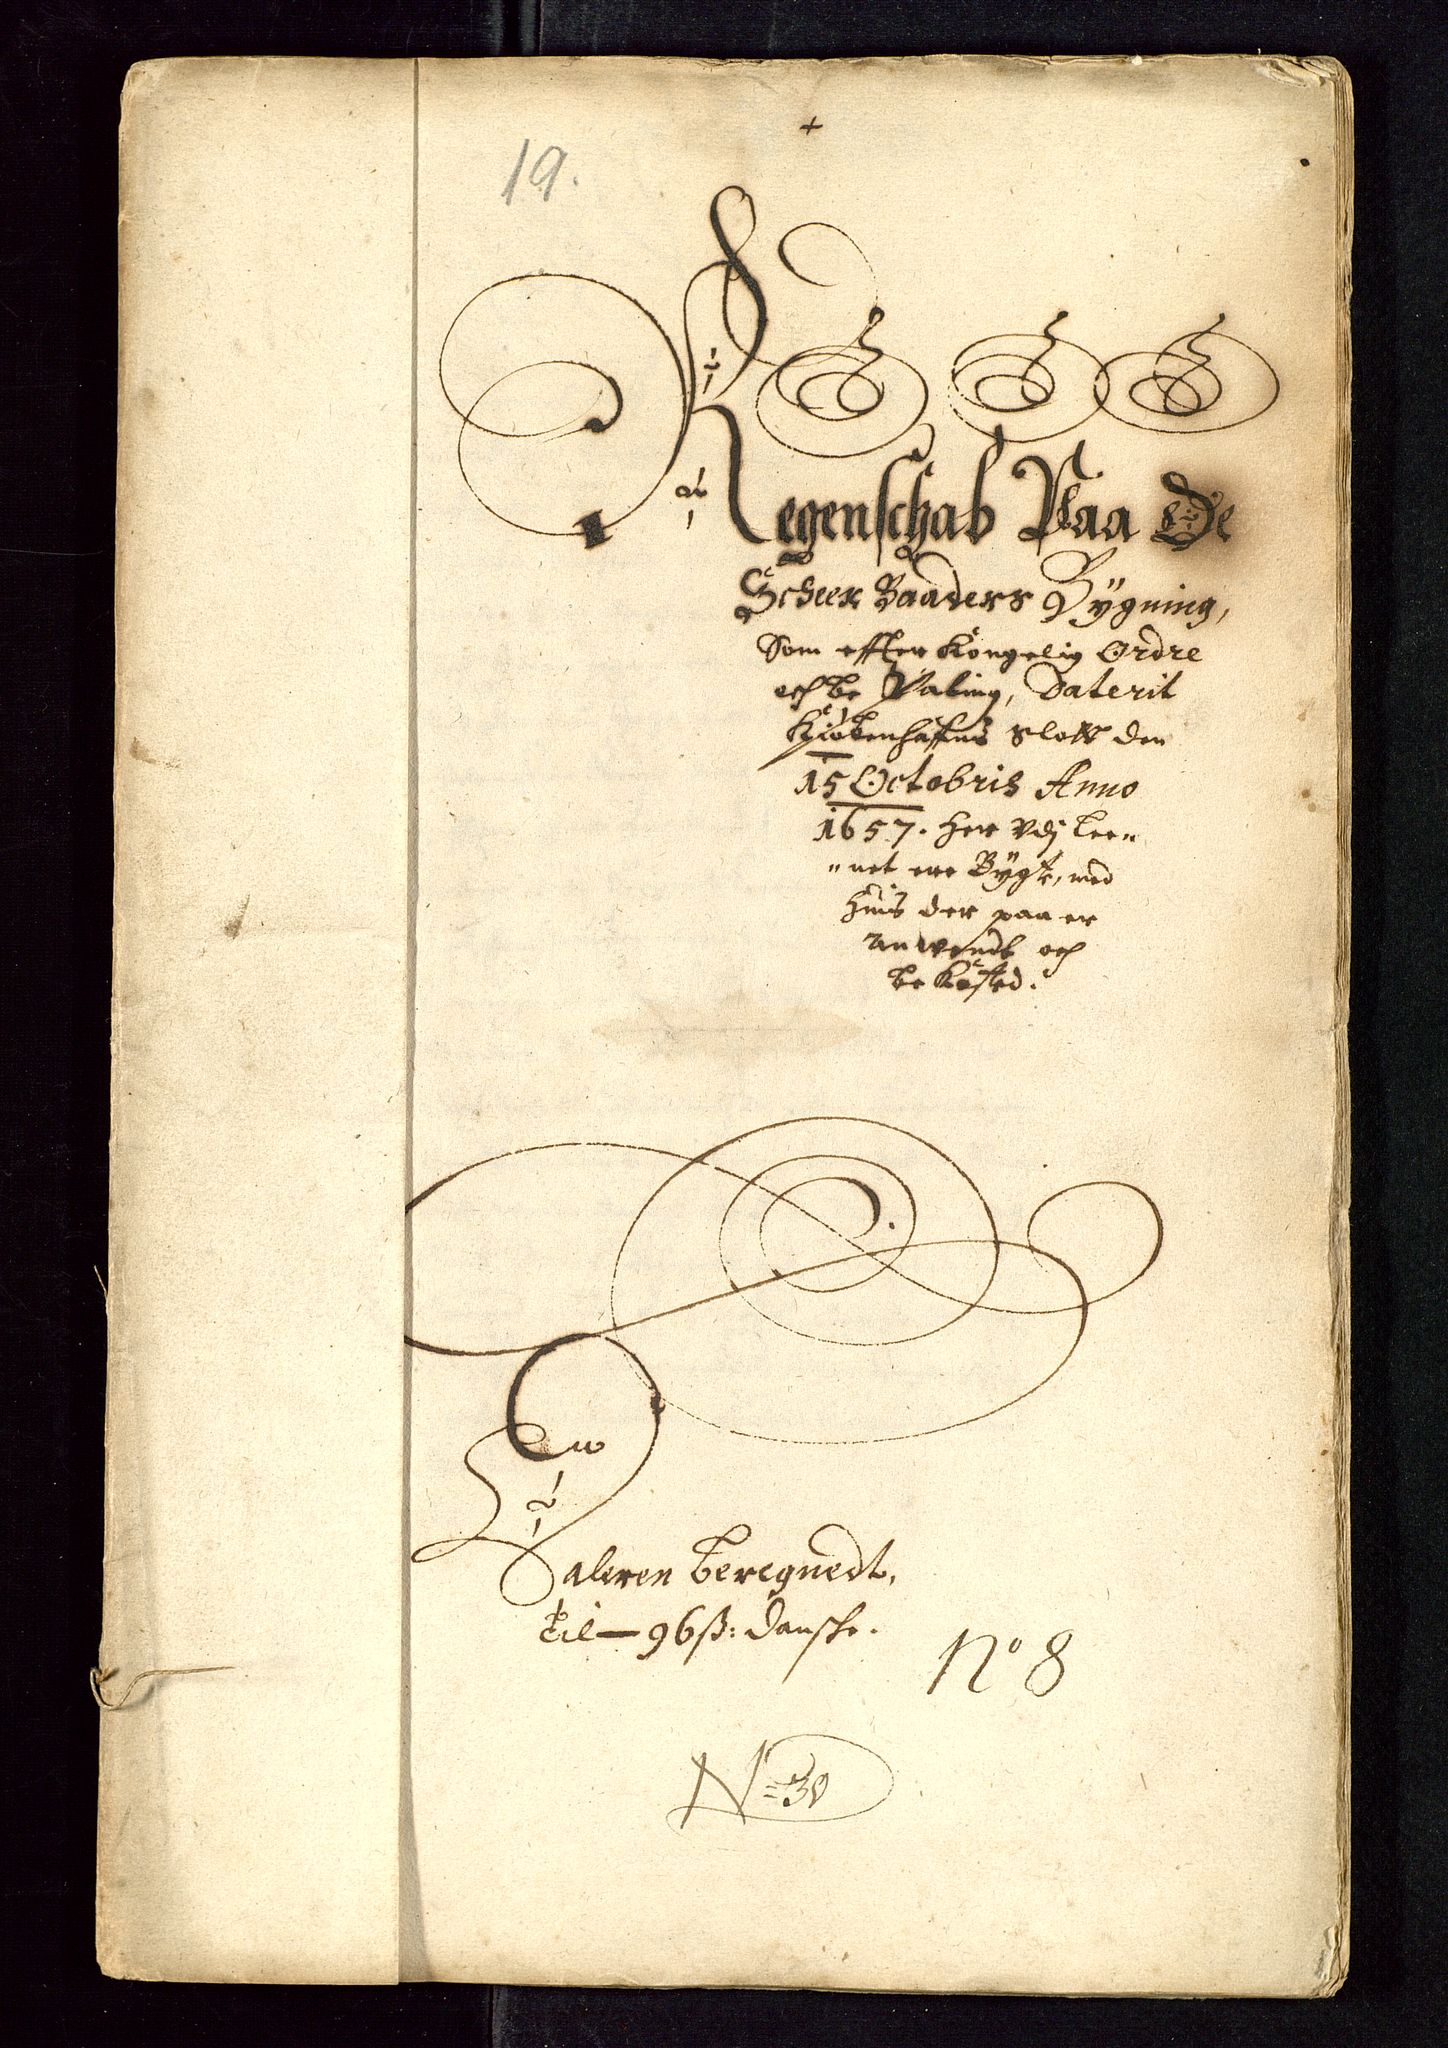 19.
Regenschab Paa De
Scheer Baaders Bygning,
Som effter Kongelig Ordre
och be Faling, Daterit
Kiøbenhaffns Slott den
15 Octobris Anno
1657. her Vdj Lee„
„net ere Bygt, med
huis der paa er
anwendt och
be Kåsted.
Daleren beregnedt,
til — 96 ß: Dansche.
No 8
N = 30